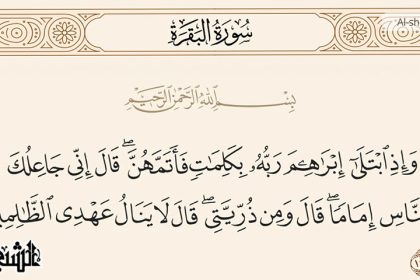 Al-sh
سُورَةُ الْبَقَرَةِ
بِسْمِ اللَّهِ الرَّحْمَٰنِ الرَّحِيمِ
وَإِذِ ابْتَلَىٰٓ إِبْرَاهِـۧمَ رَبُّهُۥ بِكَلِمَٰتٍ فَأَتَمَّهُنَّ ۖ قَالَ إِنِّى جَاعِلُكَ
لنَّاسِ إِمَامًا ۖ قَالَ وَمِن ذُرِّيَّتِى ۖ قَالَ لَا يَنَالُ عَهْدِى الظَّٰلِمِي